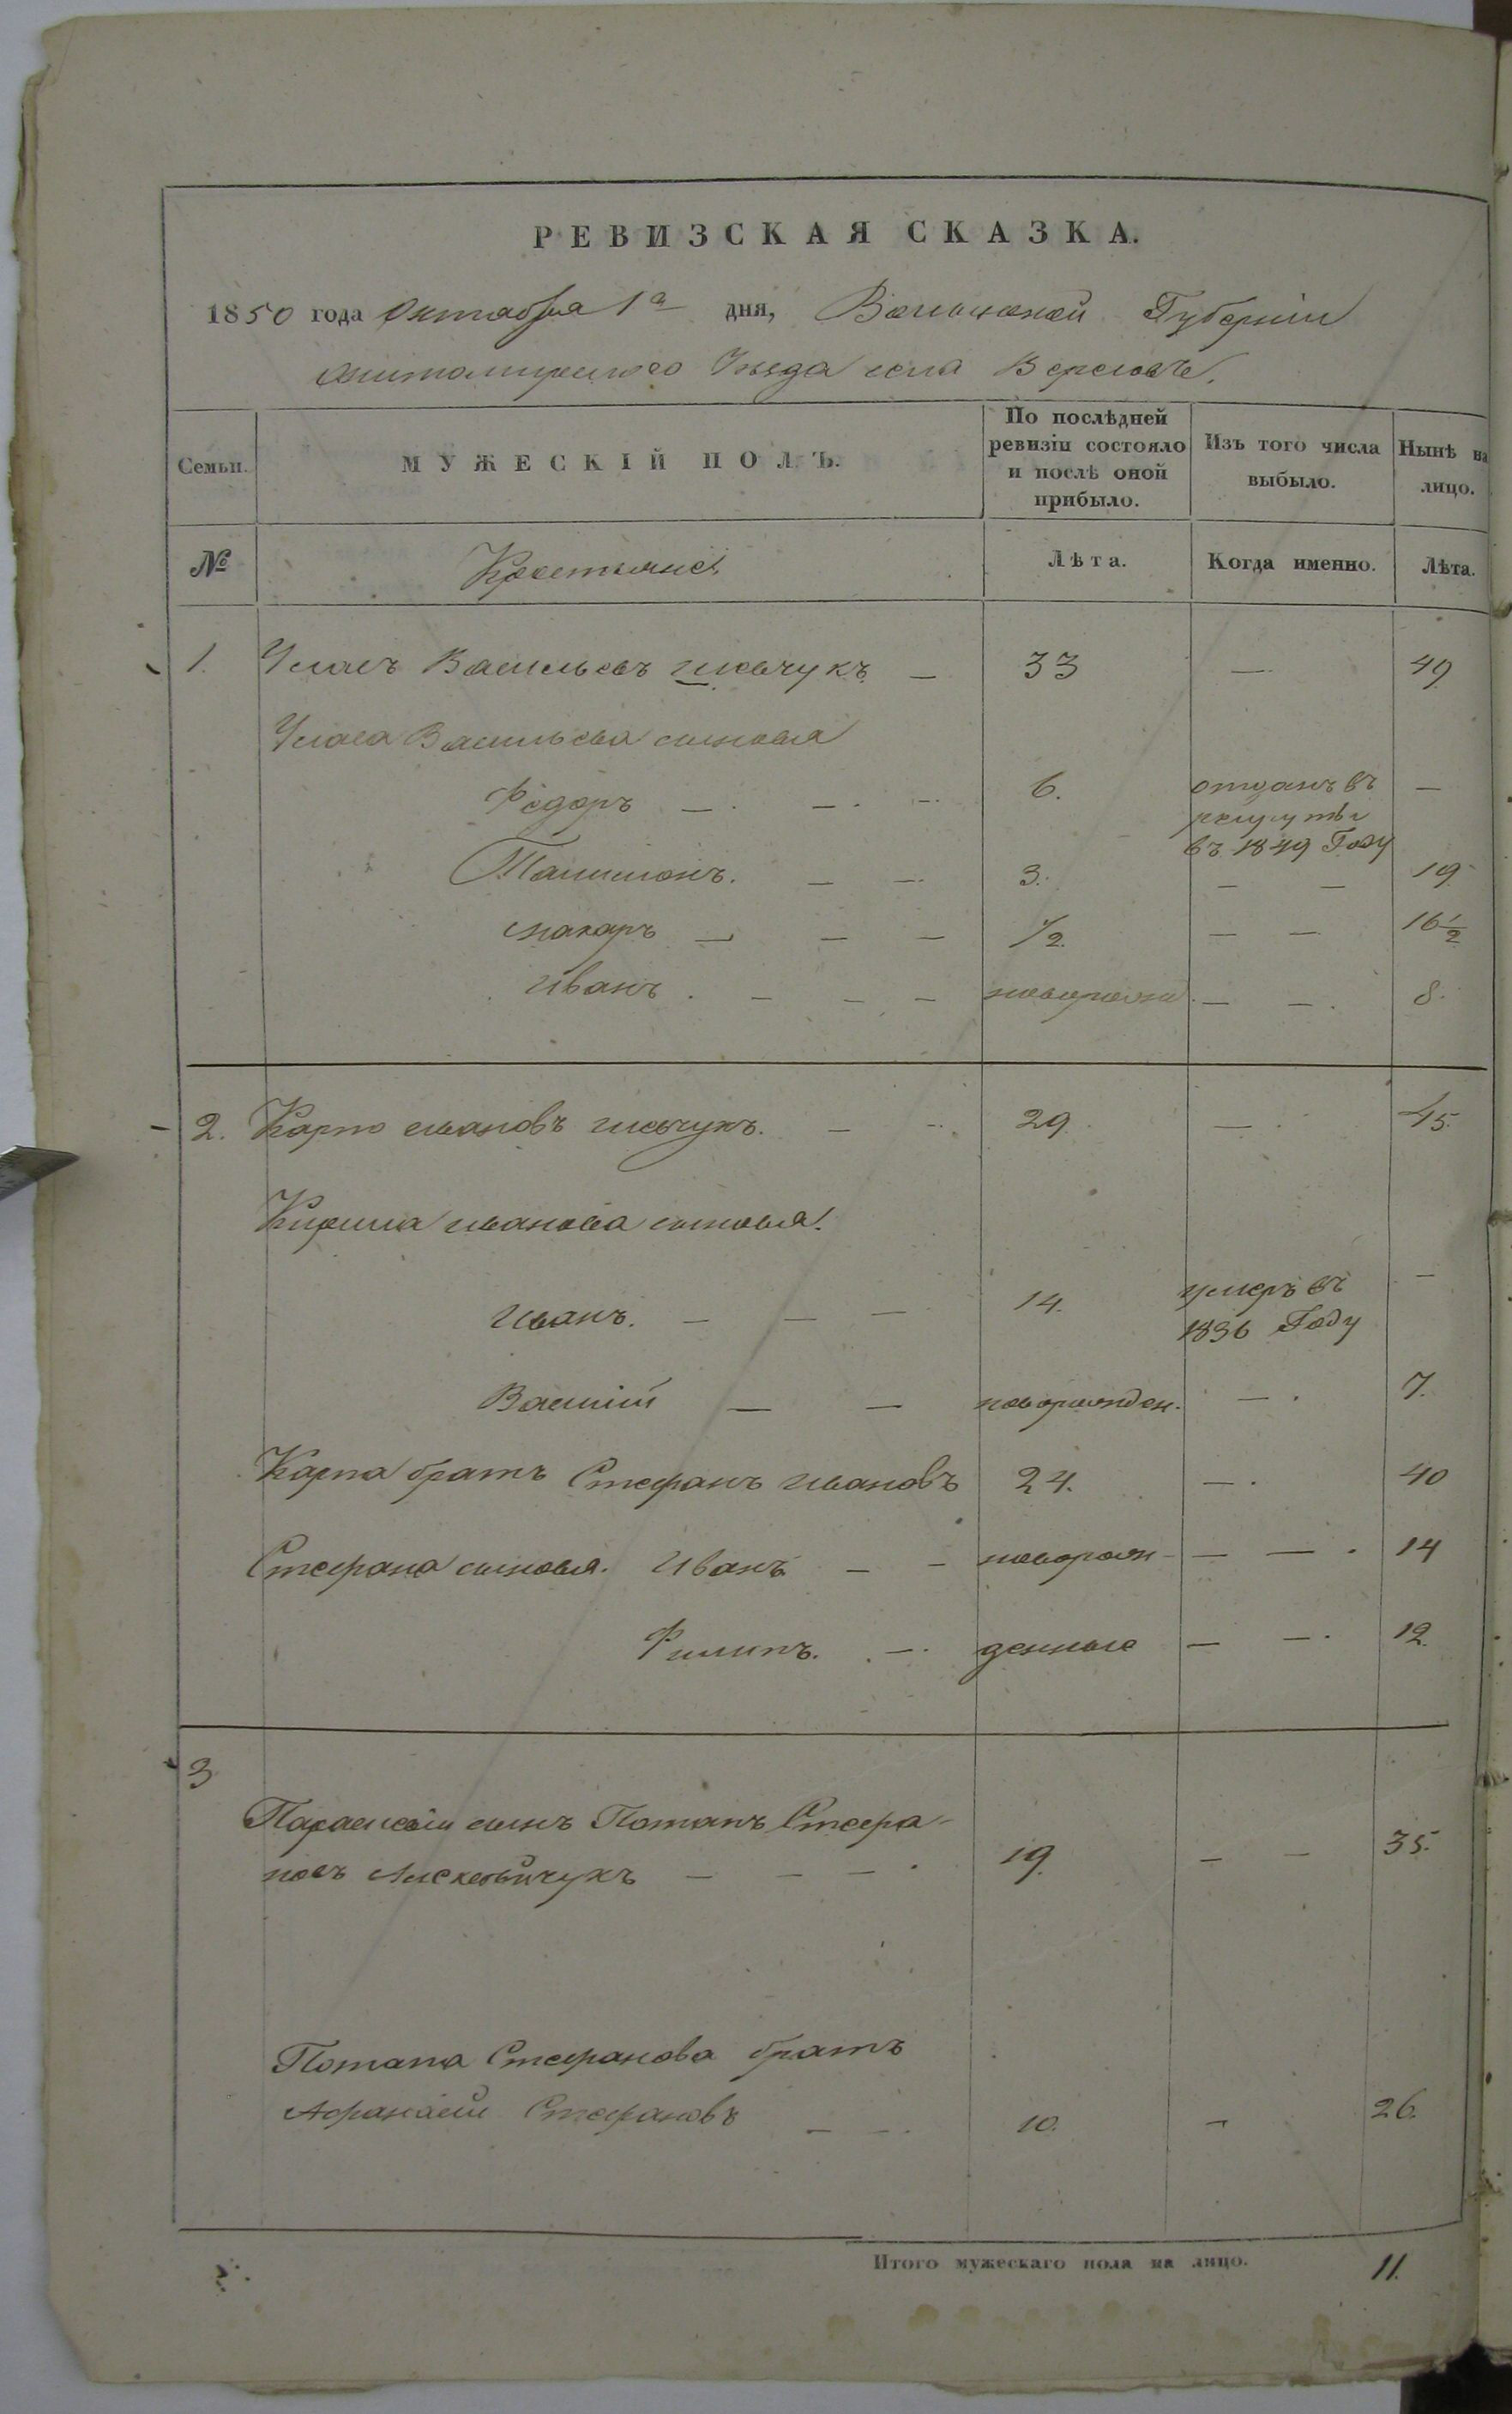 РЕВИЗСКАЯ СКАЗКА.
1850 года Октября 1го дня, Волынской Губерніи
Житомирскаго Уѣзда села
Семьи. МУЖЕСКІЙ ПОЛЪ. По послѣдней ревизіи состояло и послѣ оной прибыло. Изъ того числа выбыло. Нынѣ на лицо.
№ Крестьяне Лѣта. Когда именно. Лѣта.
1. Власъ Васильевъ — 33 — 49
Власа Васильева сыновья
Федоръ — — — 6. отданъ въ —
рекруты
въ 1849 Году
— — 3. — — 19.
Макаръ — — — 1/2. — — 16 1/2
Иванъ — — — новорожд — — 8.
2. Карпо Ивановъ — — 29 — 45.
Иванова сыновья
Иванъ. — — — 14. умеръ въ —
1836 Году
Василій — — новорожден. — 7.
Карпа братъ Стефанъ Ивановъ 24. — 40
Стефана сыновья. Иванъ — — новорож- — — 14
Филипъ. — денные — — 12.
3
сынъ Потапъ Стефа-
новъ — — — 19. — — 35.
Потапа Стефанова братъ
Афанасій Стефановъ — — 10. — 26.
Итого мужескаго пола на лицо. 11.